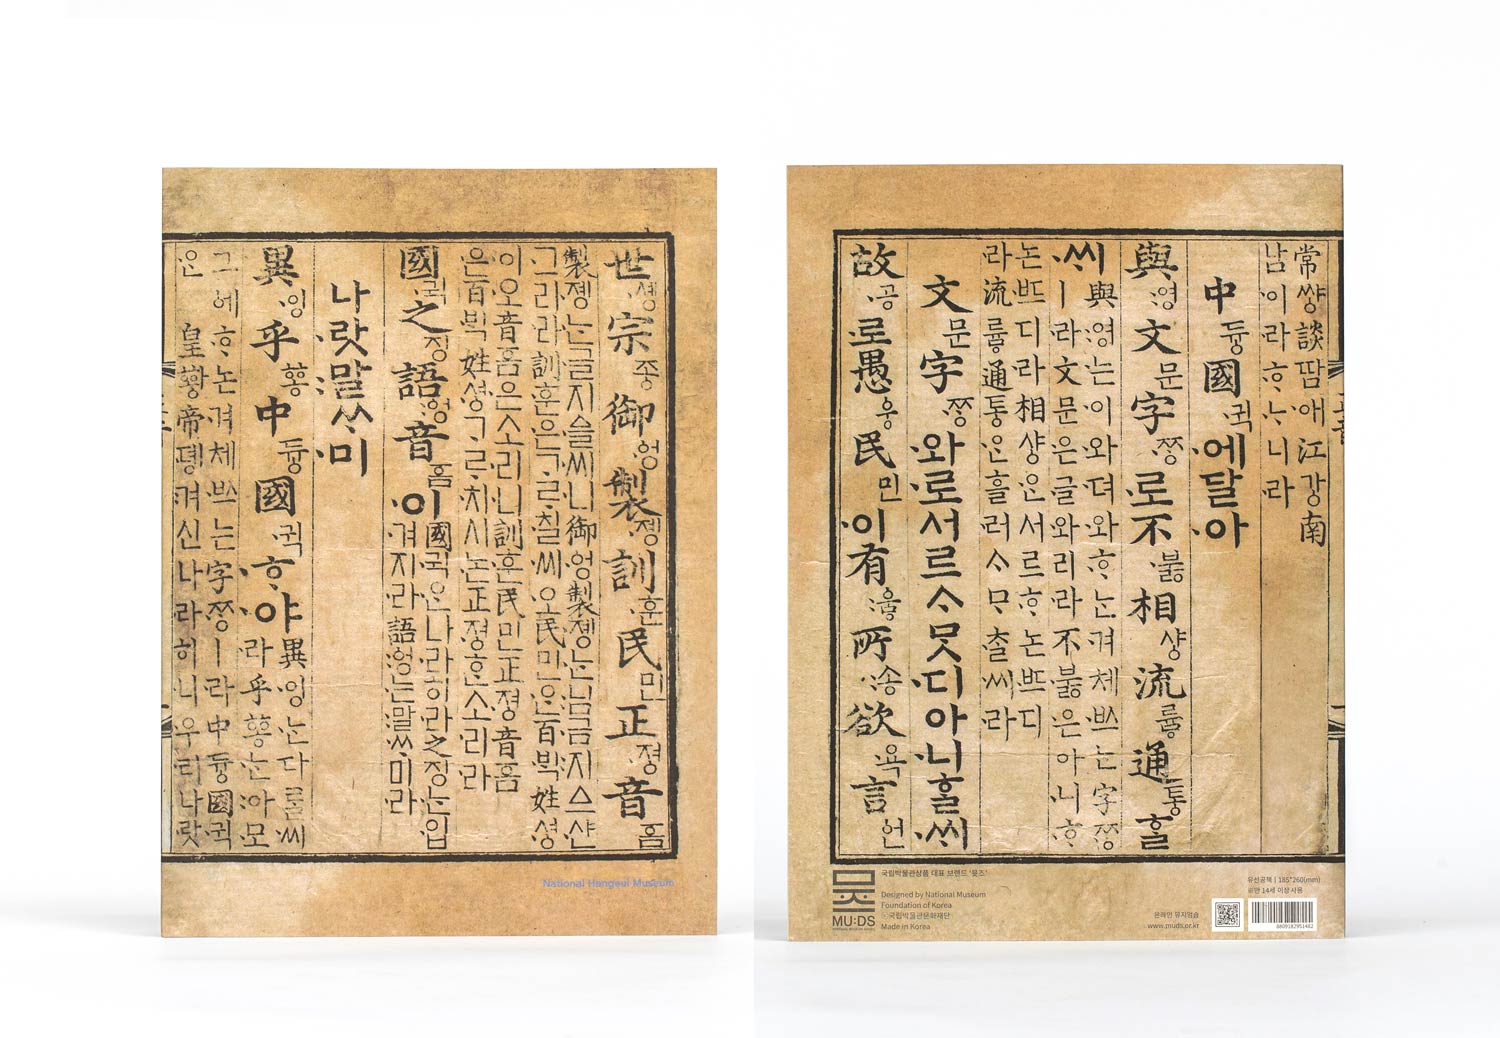 世솅宗종御엉製졩訓훈民민正졍音ᅙᅳᆷ
製졩는글지ᅀᅳᆯ씨니御엉製졩는님금지ᅀᅳ샨
그리라訓훈은ᄀᆞᄅᆞ칠씨오民민ᄋᆞᆫ百ᄇᆡᆨ姓셩
이오音ᅙᅳᆷ은소리니訓훈民민正졍音ᅙᅳᆷ
은百ᄇᆡᆨ姓셩ᄀᆞᄅᆞ치시논正졍ᄒᆞᆫ소리라
國귁之징語엉音ᅙᅳᆷ이
國귁ᄋᆞᆫ나라히라之징ᄂᆞᆫ입
겨지라語엉는말ᄊᆞ미라
나랏말ᄊᆞ미
異잉乎ᅘᅩᆼ中듕國귁ᄒᆞ야
異잉ᄂᆞᆫ다ᄅᆞᆯ씨
라乎ᅘᅩᆼᄂᆞᆫ아모
그ᅌᅦᄒᆞ논겨체ᄡᅳ는字ᄍᆞᆼㅣ라中듕國귁
ᄋᆞᆫ皇ᅘᅪᆼ帝뎽겨신나라히니우리나랏
National Hangeul Museum
常쌍談땀애江강南
남이라ᄒᆞᄂᆞ니라
中듕國귁에달아
與영文문字ᄍᆞᆼ로不붏相샹流륳通통ᄒᆞᆯ
ᄊᆡ
與영는이와뎌와ᄒᆞ는겨체ᄡᅳ는字ᄍᆞᆼ
ㅣ라文문은글와리라不붏은아니ᄒᆞ
논ᄠᅳ디라相샹ᄋᆞᆫ서르ᄒᆞ논ᄠᅳ디
라流륳通통ᄋᆞᆫ흘러ᄉᆞᄆᆞᄎᆞᆯ씨라
文문字ᄍᆞᆼ와로서르ᄉᆞᄆᆞᆺ디아니ᄒᆞᆯᄊᆡ
故공로愚웅民민이有ᅌᅮᇢ所송欲욕言언
MU:DS
국립박물관상품 대표 브랜드 '뮷즈'
Designed by National Museum
Foundation of Korea
ⓒ국립박물관문화재단
Made in Korea
유선공책 | 185*260(mm)
※만 14세 이상 사용
온라인 뮤지엄숍
www.muds.or.kr
8809182951482